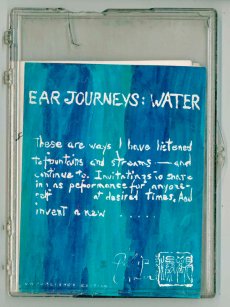 EAR JOURNEYS: WATER
These are ways I have listened
to fountains and streams — and
continue to. Invitations to share
in as peformance for anyone-
self at desired times, And
invent a new .....